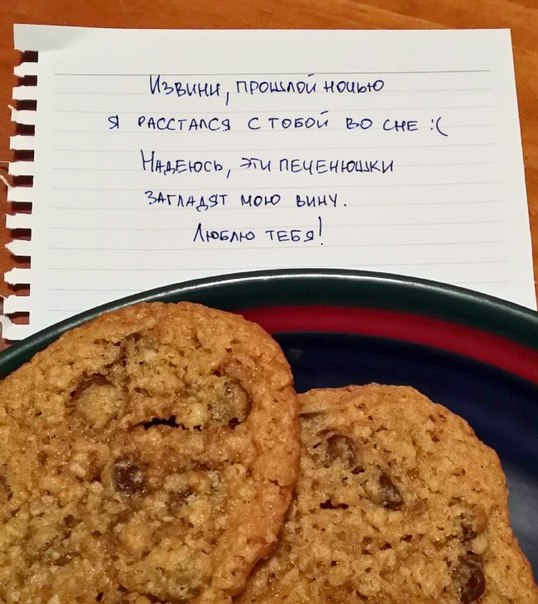 Извини, прошлой ночью
я расстался с тобой во сне :(
Надеюсь, эти печенюшки
загладят мою вину.
Люблю тебя!